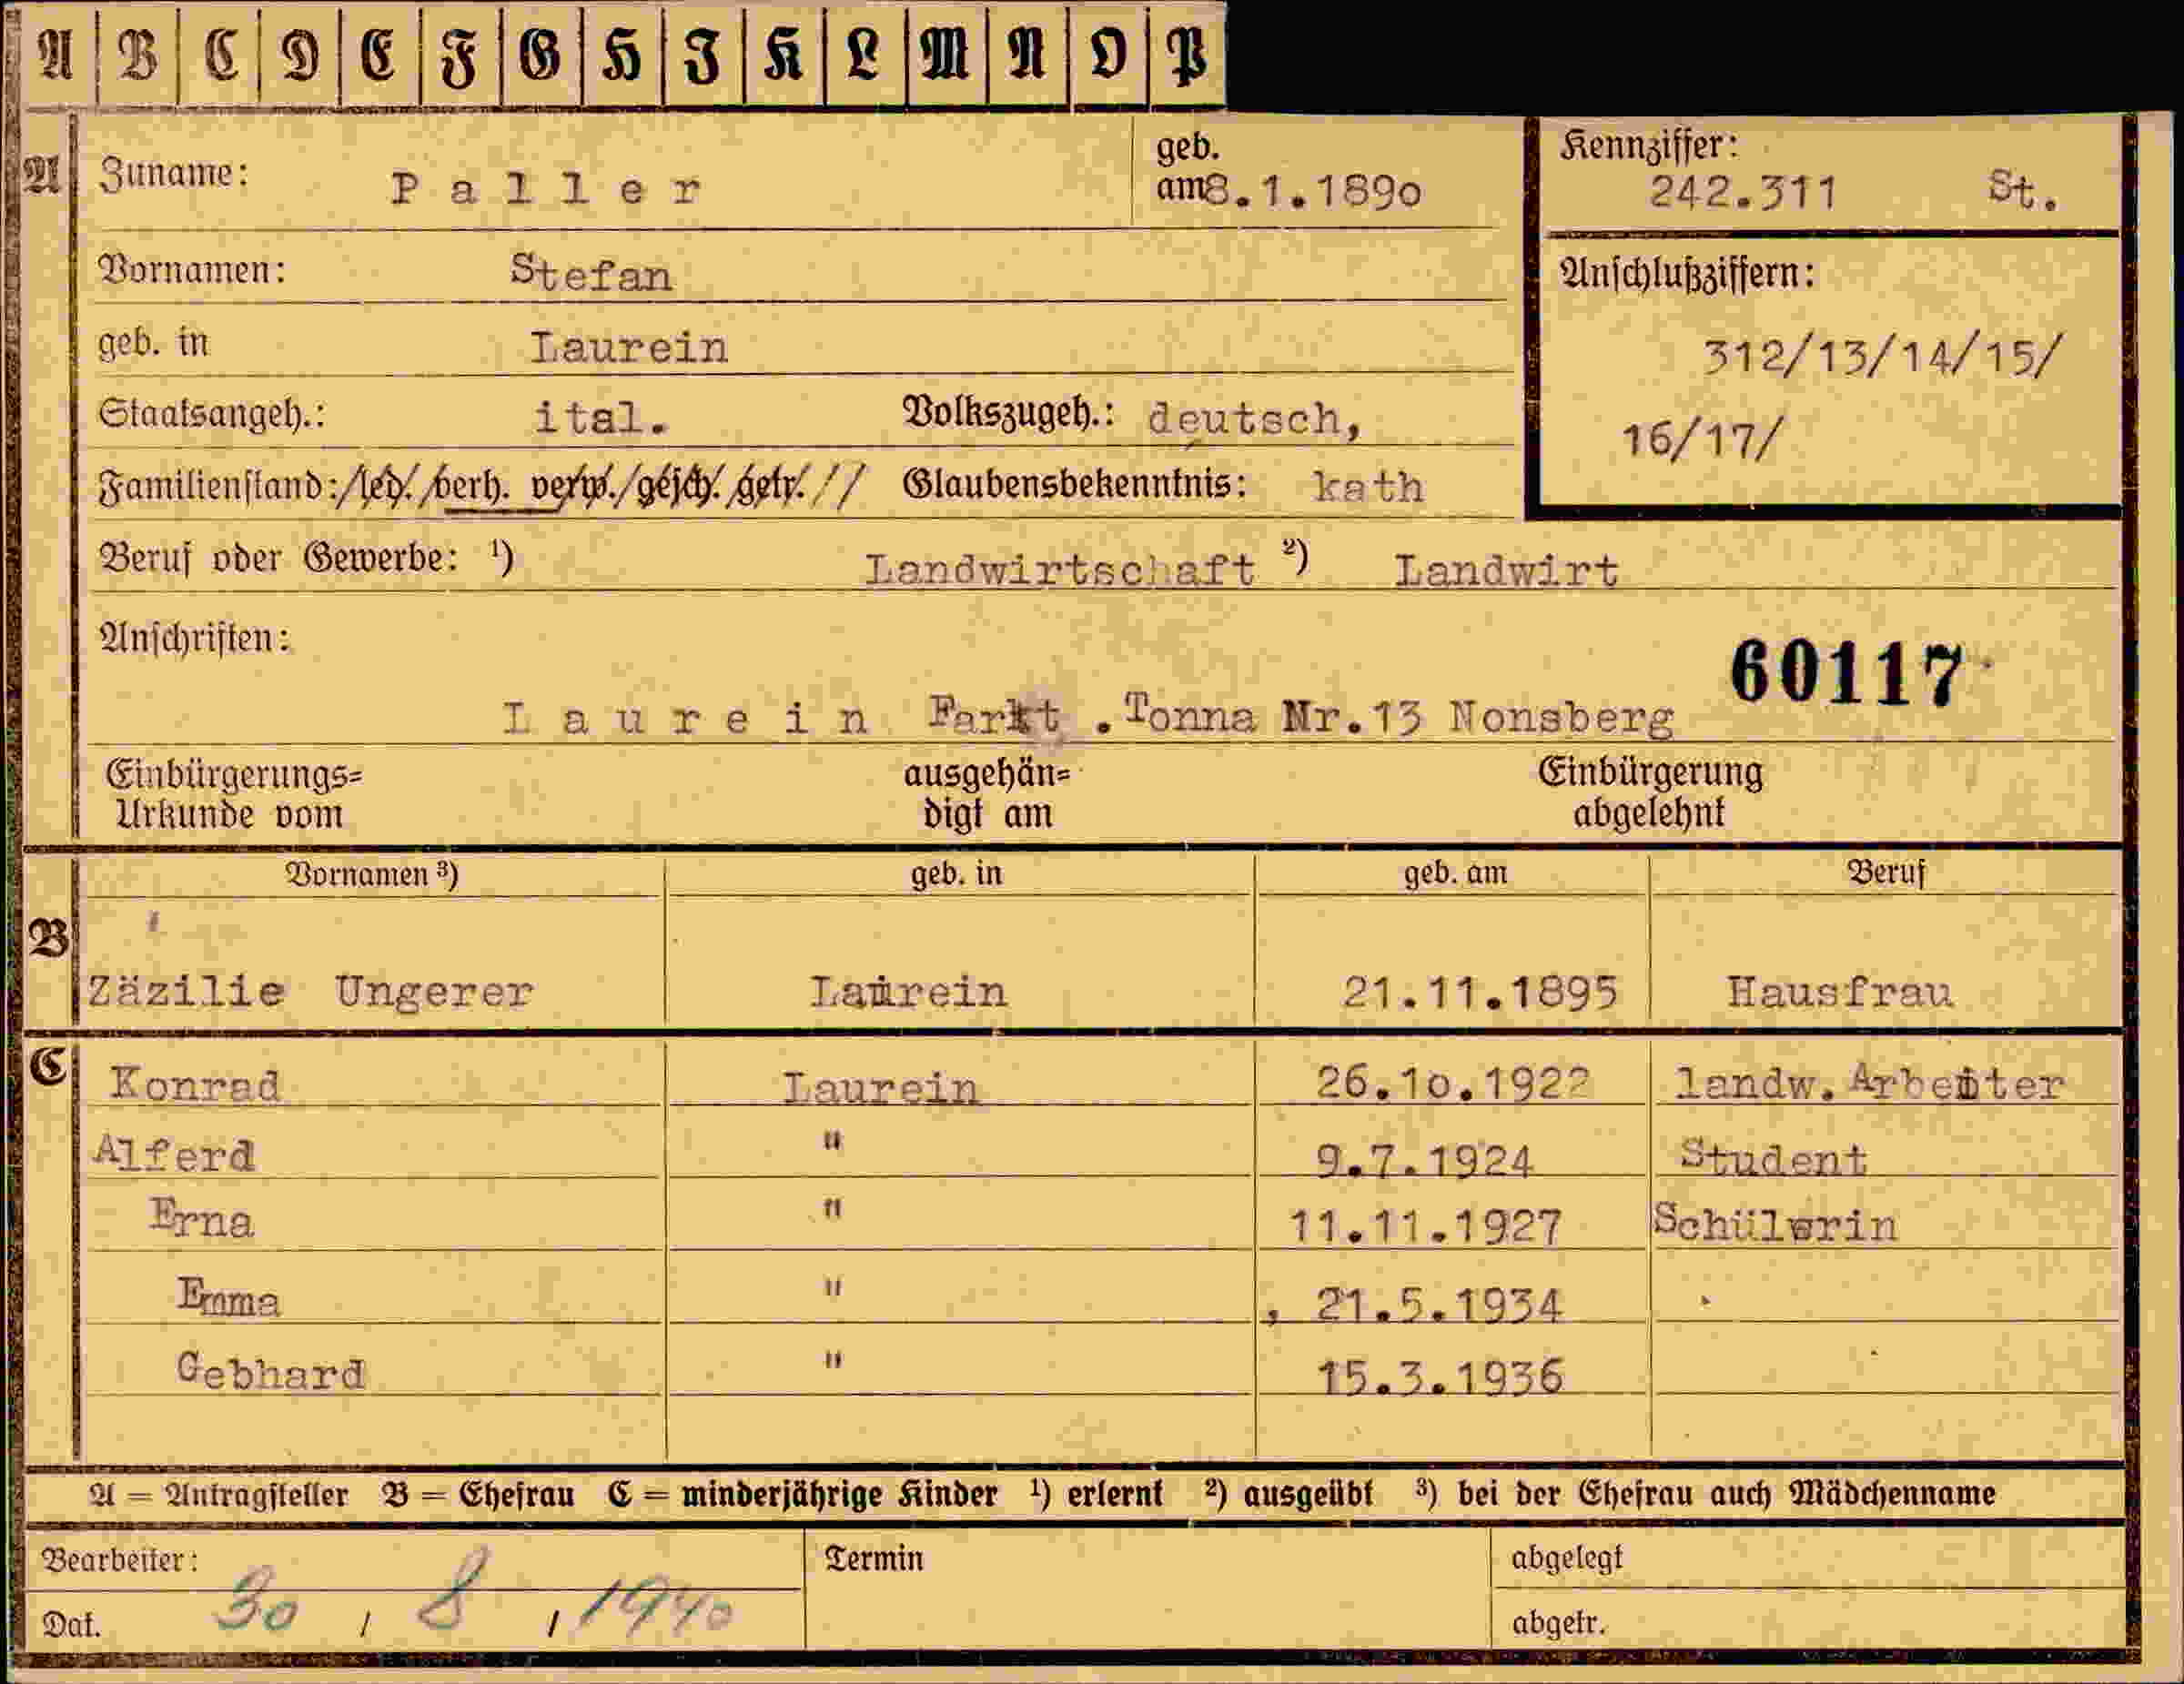 A B C D E F G H I K L M N O P
A Zuname: Paller geb. am 8.1.1890 Kennziffer: 242.311 St.
Vornamen: Stefan Anschlußziffern:
geb. in Laurein 312/13/14/15/
Staatsangeh.: ital. Volkszugeh.: deutsch, 16/17/
Familienstand: /led./verh. verw./gesch./getr.// Glaubensbekenntnis: kath
Beruf oder Gewerbe: ¹) Landwirtschaft ²) Landwirt
Anschriften: 60117
Laurein Farkt .Tonna Nr.13 Nonsberg
Einbürgerungs= ausgehän= Einbürgerung
Urkunde vom digt am abgelehnt
Vornamen ³) geb. in geb. am Beruf
B
Zäzilie Ungerer Laurein 21.11.1895 Hausfrau
C Konrad Laurein 26.10.1922 landw. Arbeiter
Alferd " 9.7.1924 Student
Erna " 11.11.1927 Schülerin
Emma " , 21.5.1934
Gebhard " 15.3.1936
A = Antragsteller B = Ehefrau C = minderjährige Kinder ¹) erlernt ²) ausgeübt ³) bei der Ehefrau auch Mädchenname
Bearbeiter: Termin abgelegt
Dat. 30 / 8 / 1940 abgetr.